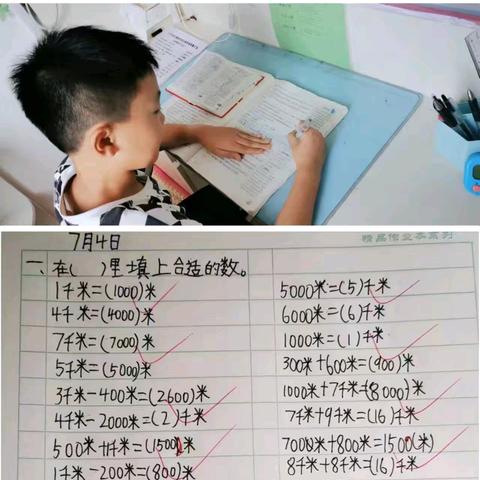 7月4日
精品作业本系列
一、在( )里填上合适的数。
1千米=(1000)米
4千米=(4000)米
7千米=(7000)米
5千米=(5000)米
3千米-400米=(2600)米
4千米-2000米=(2)千米
500米+1千米=(1500)米
1千米-200米=(800)米
5000米=(5)千米
6000米=(6)千米
1000米=(1)千米
300米+600米=(900)米
1000米+7千米=(8000)米
7千米+9千米=(16)千米
7000米+800米=1500(米)
8千米+8千米=(16)千米